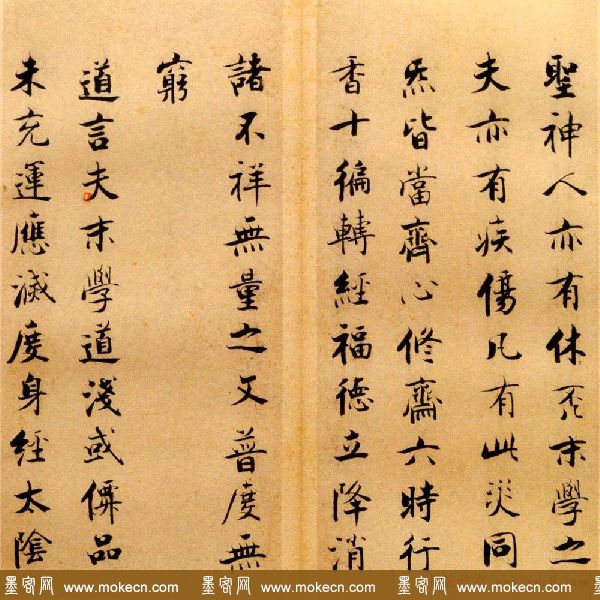 聖神人亦有休否末學之
夫亦有疾傷凡有此災同
炁皆當齊心修齋六時行
香十徧轉經福德立降消
諸不祥無量之文普度無
窮
道言夫末學道淺或僊品
未充運應滅度身經太陰
墨客网 www.mokecn.com 墨客网 www.mokecn.com 墨客网 www.mokecn.com